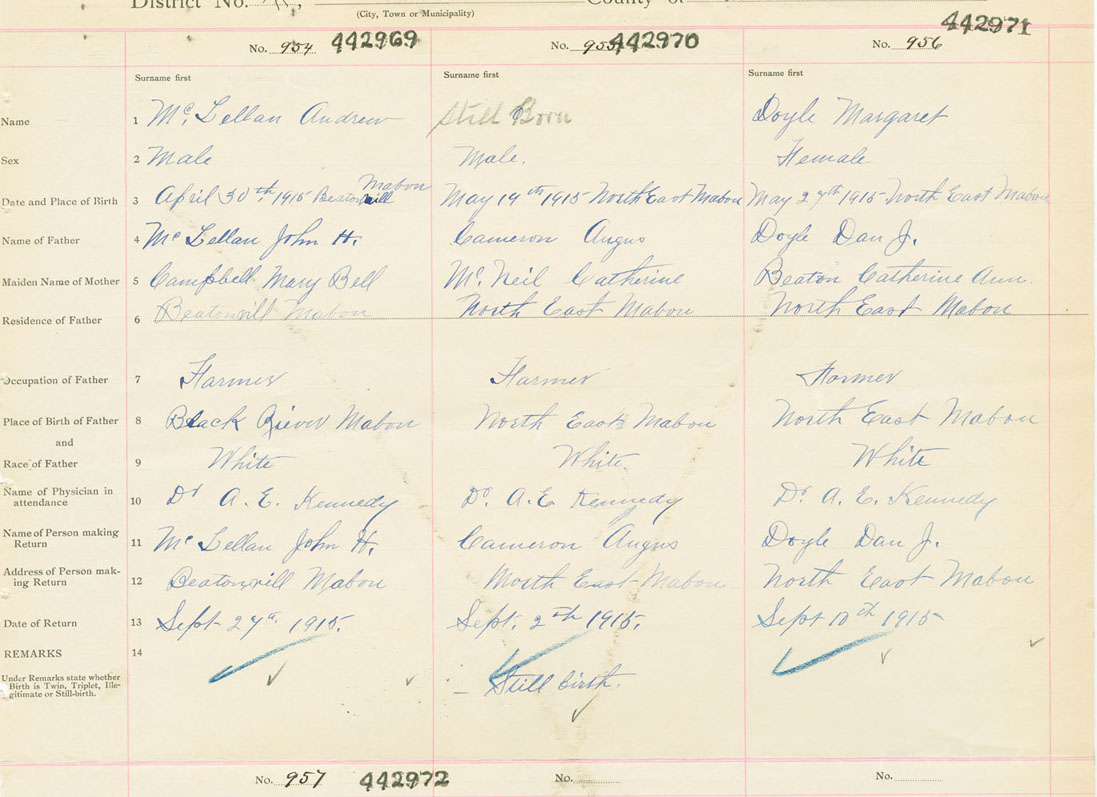 District No. , County of
(City, Town or Municipality)
No. 954 442969 No. 955 442970 No. 956 442971
Surname first Surname first Surname first
Name 1 Mc. Lellan Andrew Still Born Doyle Margaret
Sex 2 Male Male. Female
Mabou
Date and Place of Birth 3 April 30th. 1915 Beatonvill May 19th 1915 North East Mabou May 27th 1915 North East Mabou
Name of Father 4 Mc Lellan John H. Cameron Angus Doyle Dan J.
Maiden Name of Mother 5 Campbell Mary Bell Mc. Neil Catherine Beaton Catherine Ann.
Residence of Father 6 Beatonvill Mabou North East Mabou North East Mabou
Occupation of Father 7 Farmer Farmer Farmer
Place of Birth of Father 8 Black Riever Mabou North East Mabou North East Mabou
and
Race of Father 9 White White. White
Name of Physician in
attendance 10 Dr A. E. Kennedy Dr. A. E. Kennedy Dr. A. E. Kennedy
Name of Person making
Return 11 Mc Lellan John H. Cameron Angus Doyle Dan J.
Address of Person mak-
ing Return 12 Beatonvill Mabou North East Mabou North East Mabou
Date of Return 13 Sept 1915. Sept. 1915. Sept 10th 1915
REMARKS 14
Under Remarks state whether
Birth is Twin, Triplet, Ille-
gitimate or Still-birth.
– Still birth.
No. 957 442972 No. No.